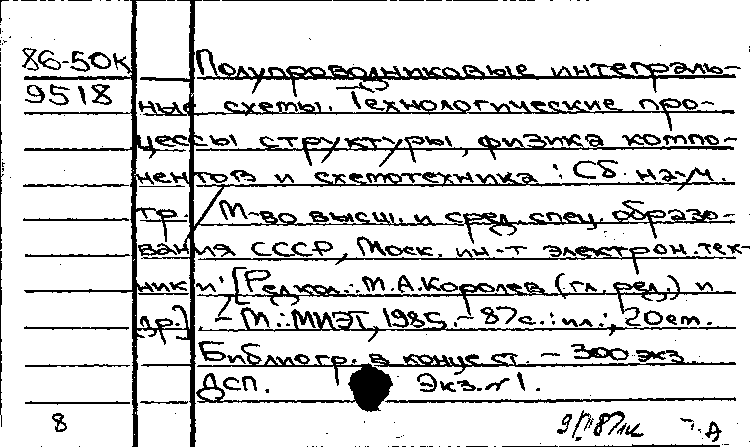 86-50к Полупроводниковые интеграль-
9518 ные схемы. Технологические про-
цессы структуры, физика компо-
нентов и схемотехника : Сб. науч.
тр. / М-во высш. и сред. спец. образо-
вания СССР, Моск. ин-т электрон. тех-
ники; [Редкол.: М.А. Королев (гл. ред.) и
др.]. - М.: МИЭТ, 1985. - 87 с. : ил.; 20 см.
Библиогр. в конце ст. - 300 экз.
ДСП. Экз. №1.
8